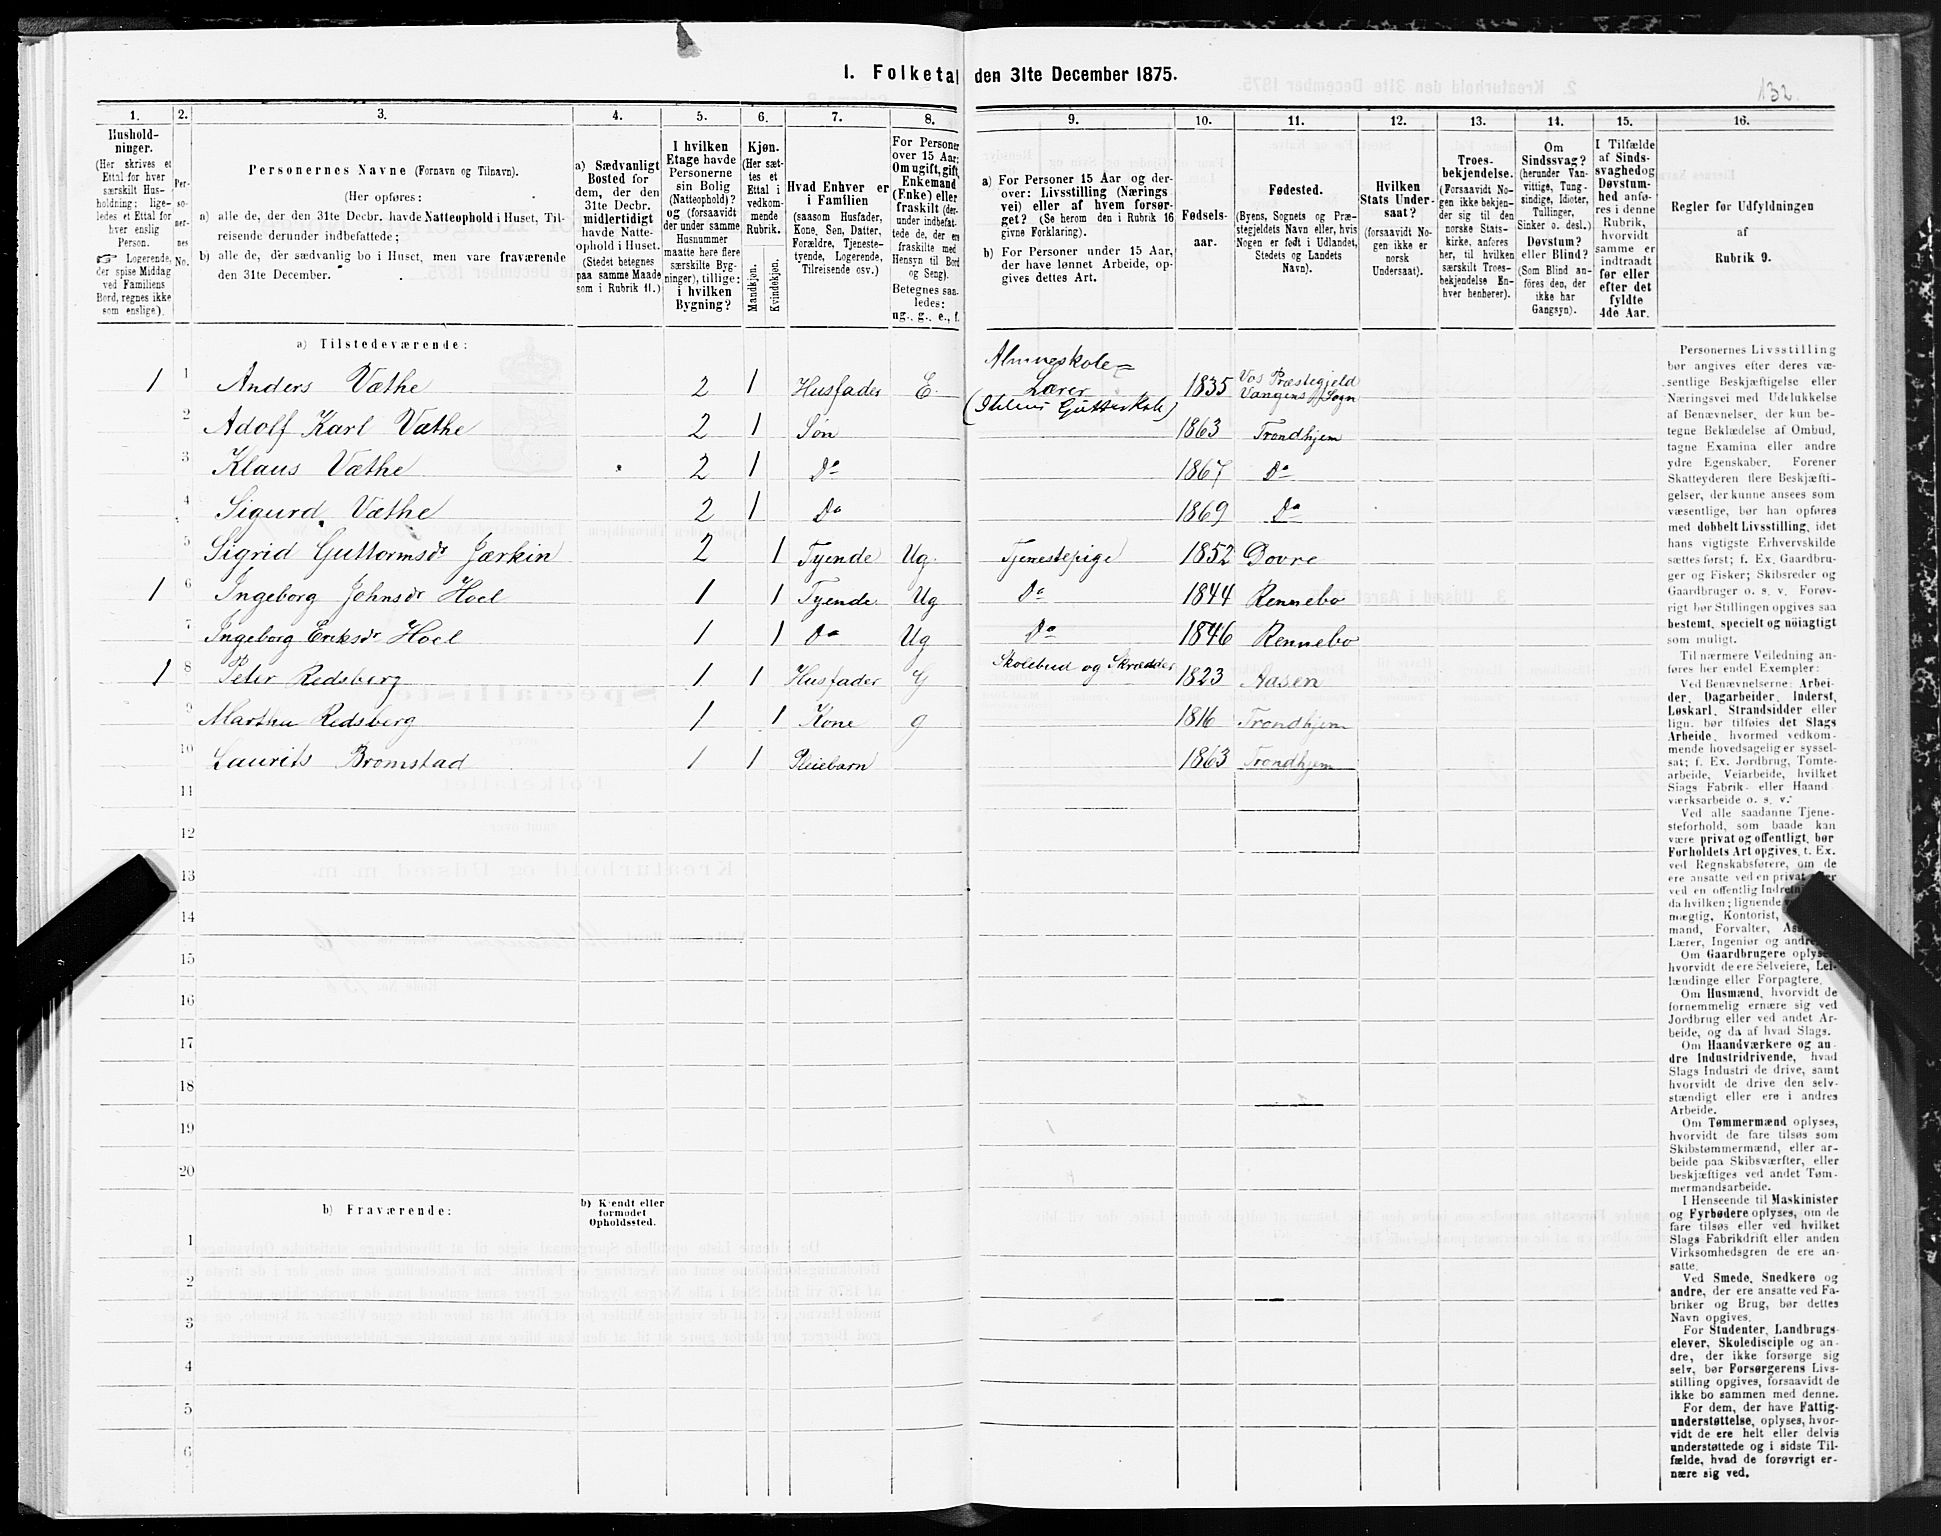 1. Folketal den 31te December 1875.
132.
1.
2.
3.
4.
5.
6.
7.
8.
9.
10.
11.
12.
13.
14.
15.
16.
Hushold-
ninger.
(Her skrives et
Ettal for hver
særskilt Hus-
holdning; lige-
ledes et Ettal for
hver enslig
Person.
☞ Logerende,
der spise Middag
ved Familiens
Bord, regnes ikke
som enslige).
Per-
so-
ner-
nes
No.
Personernes Navne (Fornavn og Tilnavn).
(Her opføres:
a) alle de, der den 31te Decbr. havde Natteophold i Huset, Til-
reisende derunder indbefattede;
b) alle de, der sædvanlig bo i Huset, men vare fraværende
den 31te December.
a) Sædvanligt
Bosted for
dem, der den
31te Decbr.
midlertidigt
havde Natte-
ophold i Huset.
(Stedet betegnes
paa samme Maade
som i Rubrik 11.)
I hvilken
Etage havde
Personerne
sin Bolig
(Natteophold)?
og (forsaavidt
der under samme
Husnummer
maatte høre flere
særskilte Byg-
ninger), tillige:
i hvilken
Bygning?
Kjøn.
(Her sæt-
tes et
Ettal i
vedkom-
mende
Rubrik.
Mandkjøn.
Kvindekjøn.
Hvad Enhver er
i Familien
(saasom Husfader,
Kone, Søn, Datter,
Forældre, Tjeneste-
tyende, Logerende,
Tilreisende osv.)
For Personer
over 15 Aar:
Om ugift, gift,
Enkemand
(Enke) eller
fraskilt (der-
under indbefat-
tede de, der ere
fraskilte med
Hensyn til Bord
og Seng).
Betegnes saa-
ledes:
ug., g., e., f.
a) For Personer 15 Aar og der-
over: Livsstilling (Nærings
vei) eller af hvem forsør-
get? (Se herom den i Rubrik 16
givne Forklaring).
b) For Personer under 15 Aar,
der have lønnet Arbeide, op-
gives dettes Art.
Fødsels-
aar.
Fødested.
(Byens, Sognets og Præ-
stegjeldets Navn eller, hvis
Nogen er født i Udlandet,
Stedets og Landets
Navn).
Hvilken
Stats Under-
saat?
(forsaavidt No-
gen ikke er
norsk
Undersaat).
Troes-
bekjendelse.
(Forsaavidt No-
gen ikke bekjen-
der sig til den
norske Stats-
kirke, anføres
her, til hvilken
særskilt Troes-
bekjendelse En-
hver henhører).
Om
Sindssvag?
(herunder Van-
vittige, Tung-
sindige, Idioter,
Tullinger,
Sinker o. desl.)
Døvstum?
eller Blind?
(Som Blind an-
føres den, der
ikke har
Gangsyn).
I Tilfælde
af Sinds-
svaghed og
Døvstum-
hed anfø-
res i denne
Rubrik,
hvorvidt
samme er
indtraadt
før eller
efter det
fyldte
4de Aar.
Regler for Udfyldningen
af
Rubrik 9.
a) Tilstedeværende:
1 1 Anders Væthe 2 1 Husfader E Almueskole=
Lærer 1835 Vos Præstegjeld
Vangens Sogn
2 Adolf Karl Væthe 2 1 Søn 1863 Trondhjem
3 Klaus Væthe 2 1 Do 1867 Do
4 Sigurd Væthe 2 1 Do 1869 Do
5 Sigrid Guttormsdr Jærkin 2 1 Tyende Ug. Tjenestepige 1852 Dovre
1 6 Ingeborg Johnsdr Hoel 1 1 Tyende Ug Do 1844 Rennebo
7 Ingeborg Eriksdr Hoel 1 1 Do Ug Do 1846 Rennebo
1 8 Peter Redsberg 1 1 Husfader G Skolebud og Skrædder 1823 Aasen
9 Martha Redsberg 1 1 Kone g 1816 Trondhjem
10 Laurits Bromstad 1 1 Pleiebarn 1863 Trondhjem
11
12
13
14
15
16
17
18
19
20
b) Fraværende:
b) Kjendt eller
formodet
Opholdssted.
1
2
3
4
5
6
Personernes Livsstilling
bør angives efter deres væ-
sentlige Beskjæftigelse eller
Næringsvei med Udelukkelse
af Benævnelser, der kun be-
tegne Beklædelse af Ombud,
tagne Examina eller andre
ydre Egenskaber. Forener
Skatteyderen flere Beskjæfti-
gelser, der kunne ansees som
væsentlige, bør han opføres
med dobbelt Livsstilling, idet
hans vigtigste Erhvervskilde
sættes først; f. Ex. Gaardbru-
ger og Fisker; Skibsreder og
Gaardbruger o. s. v. Forøv-
rigt bør Stillingen opgives saa
bestemt, specielt og nøiagtigt
som muligt.
Til nærmere Veiledning an-
føres her endel Exempler:
Ved Benævnelserne: Arbei-
der, Dagarbeider, Inderst,
Løskarl, Strandsidder eller
lign. bør tilføies det Slags
Arbeide, hvormed vedkom-
mende hovedsagelig er syssel-
sat; f. Ex. Jordbrug, Tomte-
arbeide, Veiarbeide, hvilket
Slags Fabrik- eller Haand
værksarbeide o. s. v.
Ved alle saadanne Tjene-
steforhold, som baade kan
være privat og offentligt, bør
Forholdets Art opgives, t. Ex.
ved Regnskabsførere, om de
ere ansatte ved en privat
ved en offentlig
da hvilken; lignende
mægtig, Kontorist,
mand, Forvalter,
Lærer, Ingeniør og
Om Gaardbrugere
hvorvidt de ere Selveiere, Lei-
lændinge eller Forpagtere.
Om Husmænd, hvorvidt de
fornemmelig ernære sig ved
Jordbrug eller ved andet Ar-
beide, og da af hvad Slags.
Om Haandværkere og an-
dre Industridrivende, hvad
Slags Industri de drive, samt
hvorvidt de drive den selv-
stændigt eller ere i andres
Arbeide.
Om Tømmermænd oplyses,
hvorvidt de fare tilsøs som
Skibstømmermænd, eller ar-
beide paa Skibsværfter, eller
beskjæftiges ved andet Tøm-
mermandsarbeide.
I Henseende til Maskinister
og Fyrbødere oplyses, om de
fare tilsøs eller ved hvilket
Slags Fabrikdrift eller anden
Virksomhedsgren de ere an-
satte.
Ved Smede, Snedkere og
andre, der ere ansatte ved Fa-
briker og Brug, bør dettes
Navn opgives.
For Studenter, Landbrugs-
elever, Skoledisciple og an-
dre, der ikke forsørge sig
selv, bør Forsørgerens Livs-
stilling opgives, forsaavidt de
ikke bo sammen med denne.
For dem, der have Fattig-
understøttelse, oplyses, hvor-
vidt de ere helt eller delvis
understøttede og i sidste Til-
fælde, hvad de forøvrigt er-
nære sig ved.